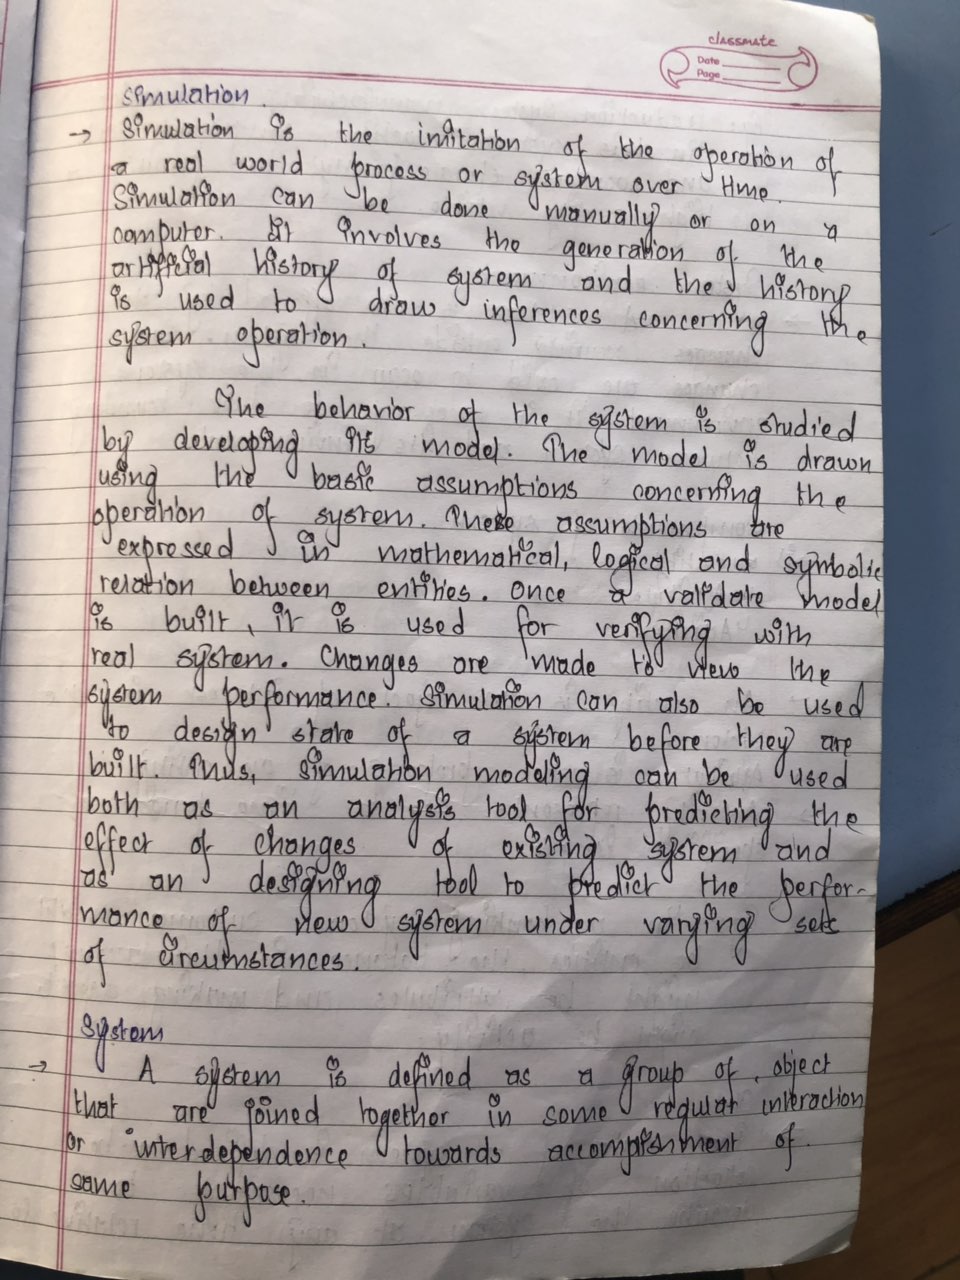 classmate
Date
Page
Simulation.
→ Simulation is the imitation of the operation of
a real world process or system over time.
Simulation can be done manually or on a
computer. It involves the generation of the
artificial history of system and the history
is used to draw inferences concerning the
system operation.
The behavior of the system is studied
by developing its model. The model is drawn
using the basic assumptions concerning the
operation of system. These assumptions are
expressed in mathematical, logical and symbolic
relation between entities. Once a validate model
is built, it is used for verifying with
real system. Changes are made to view the
system performance. Simulation can also be used
to design state of a system before they are
built. Thus, simulation modeling can be used
both as an analysis tool for predicting the
effect of changes of existing system and
as an designing tool to predict the perfor-
mance of new system under varying sets
of circumstances.
System
→ A system is defined as a group of object
that are joined together in some regular interaction
or interdependence towards accomplishment of
same purpose.